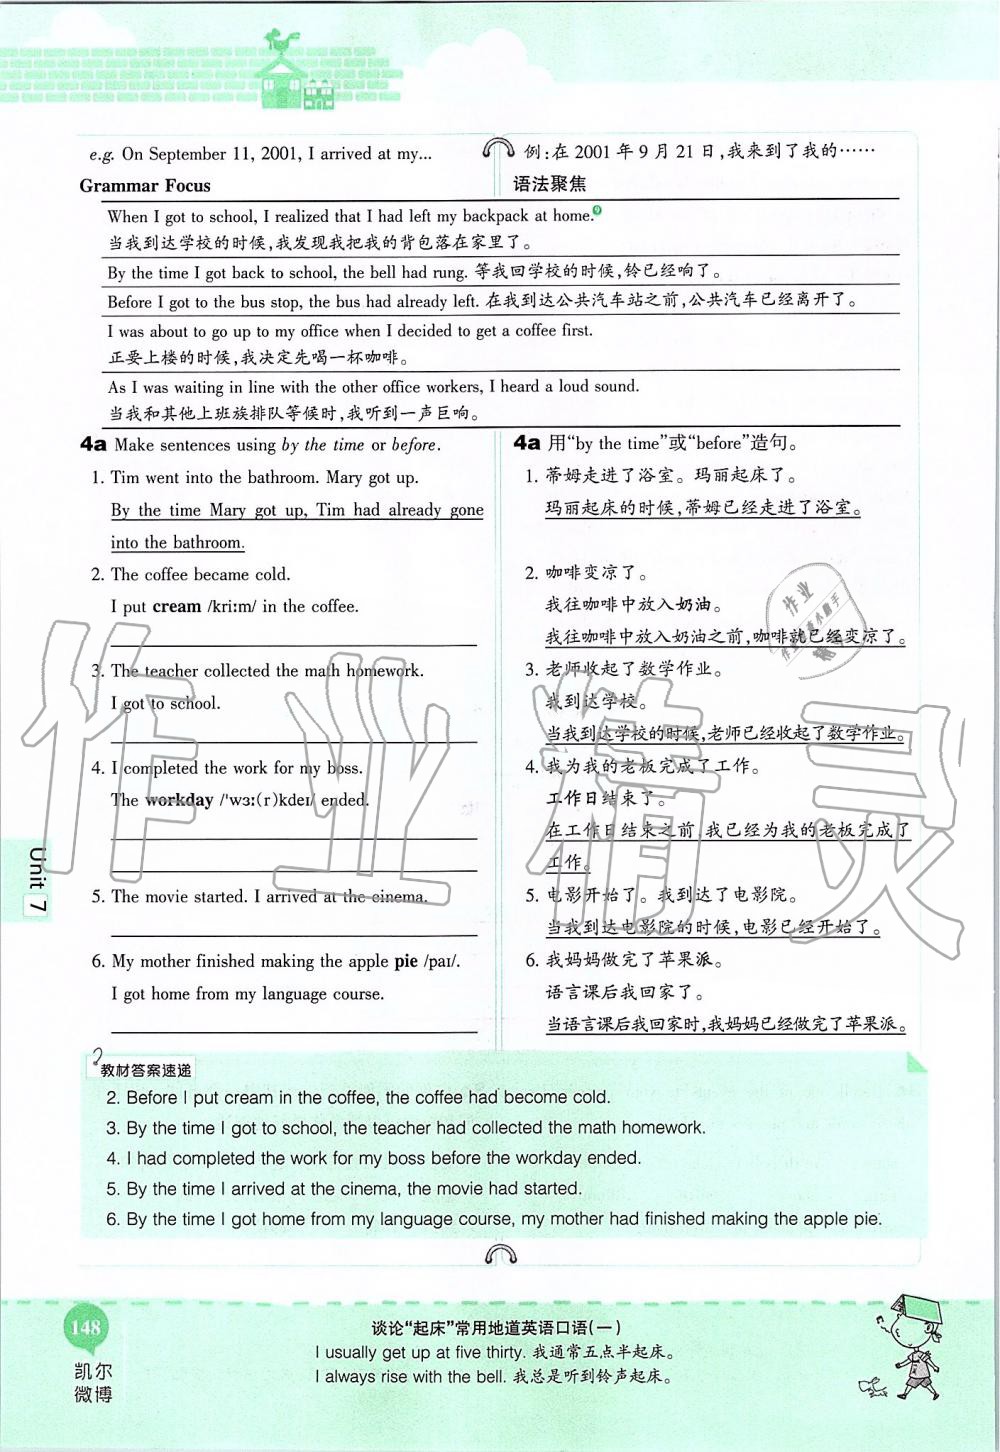 e.g. On September 11, 2001, I arrived at my...
例:在 2001 年 9 月 21 日,我来到了我的……
Grammar Focus
语法聚焦
When I got to school, I realized that I had left my backpack at home.9
当我到达学校的时候,我发现我把我的背包落在家里了。
By the time I got back to school, the bell had rung. 等我回学校的时候,铃已经响了。
Before I got to the bus stop, the bus had already left. 在我到达公共汽车站之前,公共汽车已经离开了。
I was about to go up to my office when I decided to get a coffee first.
正要上楼的时候,我决定先喝一杯咖啡。
As I was waiting in line with the other office workers, I heard a loud sound.
当我和其他上班族排队等候时,我听到一声巨响。
4a Make sentences using by the time or before.
1. Tim went into the bathroom. Mary got up.
By the time Mary got up, Tim had already gone
into the bathroom.
2. The coffee became cold.
I put cream /kriːm/ in the coffee.
3. The teacher collected the math homework.
I got to school.
4. I completed the work for my boss.
The workday /'wɜː(r)kdeɪ/ ended.
5. The movie started. I arrived at the cinema.
6. My mother finished making the apple pie /paɪ/.
I got home from my language course.
4a 用“by the time”或“before”造句。
1. 蒂姆走进了浴室。玛丽起床了。
玛丽起床的时候,蒂姆已经走进了浴室。
2. 咖啡变凉了。
我往咖啡中放入奶油。
我往咖啡中放入奶油之前,咖啡就已经变凉了。
3. 老师收起了数学作业。
我到达学校。
当我到达学校的时候,老师已经收起了数学作业。
4. 我为我的老板完成了工作。
工作日结束了。
在工作日结束之前,我已经为我的老板完成了
工作。
5. 电影开始了。我到达了电影院。
当我到达电影院的时候,电影已经开始了。
6. 我妈妈做完了苹果派。
语言课后我回家了。
当语言课后我回家时,我妈妈已经做完了苹果派。
教材答案速递
2. Before I put cream in the coffee, the coffee had become cold.
3. By the time I got to school, the teacher had collected the math homework.
4. I had completed the work for my boss before the workday ended.
5. By the time I arrived at the cinema, the movie had started.
6. By the time I got home from my language course, my mother had finished making the apple pie.
Unit 7
作业精灵
148
凯尔
微博
谈论“起床”常用地道英语口语(一)
I usually get up at five thirty. 我通常五点半起床。
I always rise with the bell. 我总是听到铃声起床。